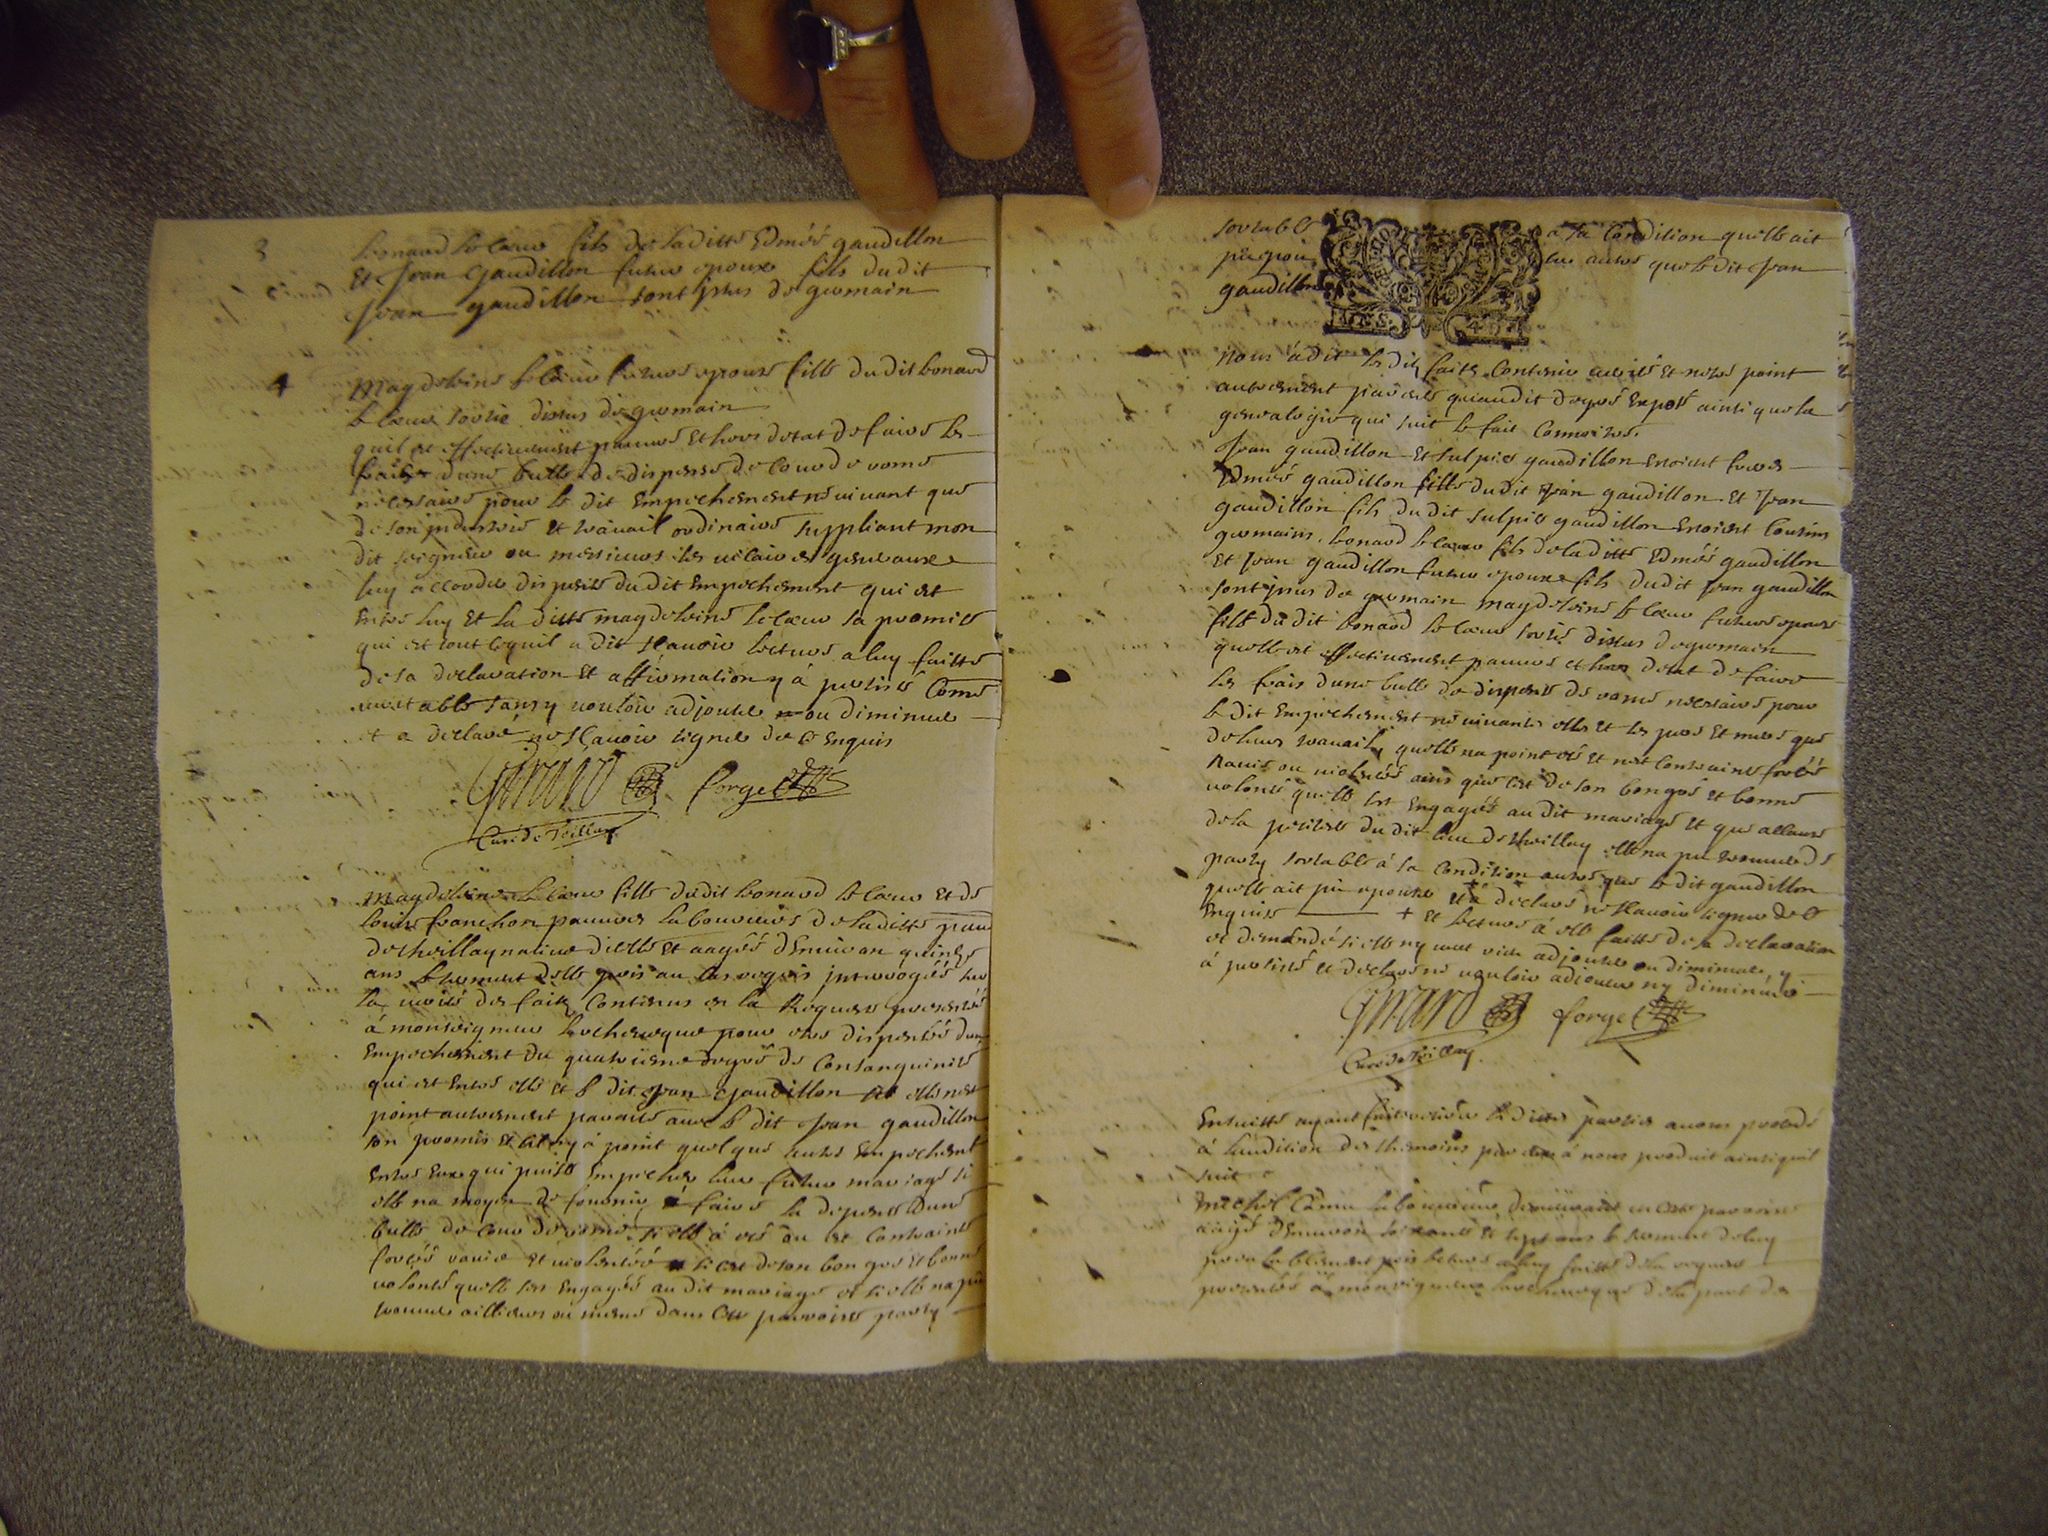 3 Lenard le cœur fils de laditte Edmée gaudillon
Et Jean Gaudillon futur epoux fils dudit
Jean gaudillon sont issus de germain
4 Magdeleine le cœur future epouse fille dudit lenard
le cœur sortie dissus de germain
quil est effectivement pauvre et hors detat de faire les
frais dune bulle de dispense de cour de rome
necessaire pour le dit Empechement ne vivant que
de son industrie et travail ordinaire suppliant mon
dit seigneur ou messieurs les vicaires generaux
luy accorder dispense du dit Empechement qui est
Entre luy et la ditte magdeleine le cœur sa promise
qui est tout ce quil a dit sçavoir lecture a luy faitte
de sa declaration et affirmation y à persisté Come
veritable sans y vouloir adjouter ou diminuer
et a declaré ne sçavoir signer de ce Enquis
Girard forget
Curé de
Magdeleine le cœur fille dudit lenard le cœur et de
louise franchon pauvres laboureurs de laditte
ans le serment delle pris au cas requis interrogée sur
la verité des faits Contenus en la Requeste presentée
à monseigneur larchevesque pour estre dispensée dun
Empechement du quatriesme degré de Consanguinité
qui est Entre elle et le dit Jean Gaudillon si elle nest
point autrement parente avec le dit Jean gaudillon
son promis et sil ny à point quelque autre Empechement
Entre Eux qui puisse Empecher leur futur mariage si
elle na moyen de fournir faire la depense dune
bulle de cour de rome si elle à esté ou est Contrainte
forcée ravie et violentée si cest de son bon gré et bonne
volonté quelle sest Engagée au dit mariage et si elle na pu
trouver ailleurs ou mesme dans cette parroisse party
sortable a sa Condition quelle ait
autre que le dit Jean
gaudillon
Nous à dit les dits faits Contenir verité et nestre point
autrement parente quaudit degré Exposé ainsi que la
genealogie qui suit le fait Connoitre.
Jean gaudillon et sulpice gaudillon Estoient freres
Edmée gaudillon fille dudit Jean gaudillon Et Jean
gaudillon fils du dit sulpice gaudillon Estoient Cousins
germains, lenard le cœur fils de laditte Edmée gaudillon
Et Jean gaudillon futur epoux fils dudit Jean gaudillon
sont issus de germain magdeleine le cœur future epouse
fille du dit lenard le cœur sortie dissus de germain
quelle est effectivement pauvre et hors detat de faire
les frais dune bulle de dispense de rome necessaire pour
le dit Empechement ne vivants elle et ses pere et mere que
de leurs travail, quelle na point esté et nest Contrainte forcée
Ravie ou violentée ains que cest de son bon gré et bonne
volonté quelle sest Engagée au dit mariage et que attendu
de la petitesse du dit lieu de elle na pu trouver de
party sortable à sa Condition autre que le dit gaudillon
quelle ait pu epouser et a declaré ne sçavoir signer de ce
Enquise + et lecture à elle faitte de sa declaration
et demandé si elle ny veut rien adjouter ou diminuer, y
à persisté et declaré ne vouloir adjouter ny diminuer
Girard forget
Curé de
Ensuitte ayant fait retirer les dittes parties avons procedé
à laudition des thesmoins par eux à nous produit ainsi quil
suit
Michel Camu laboureur demeurant en cette parroisse
aagé denviron soixante et sept ans le serment de luy
prealablement pris lecture a luy faitte de la requeste
presentée à monseigneur larchevesque de la part de